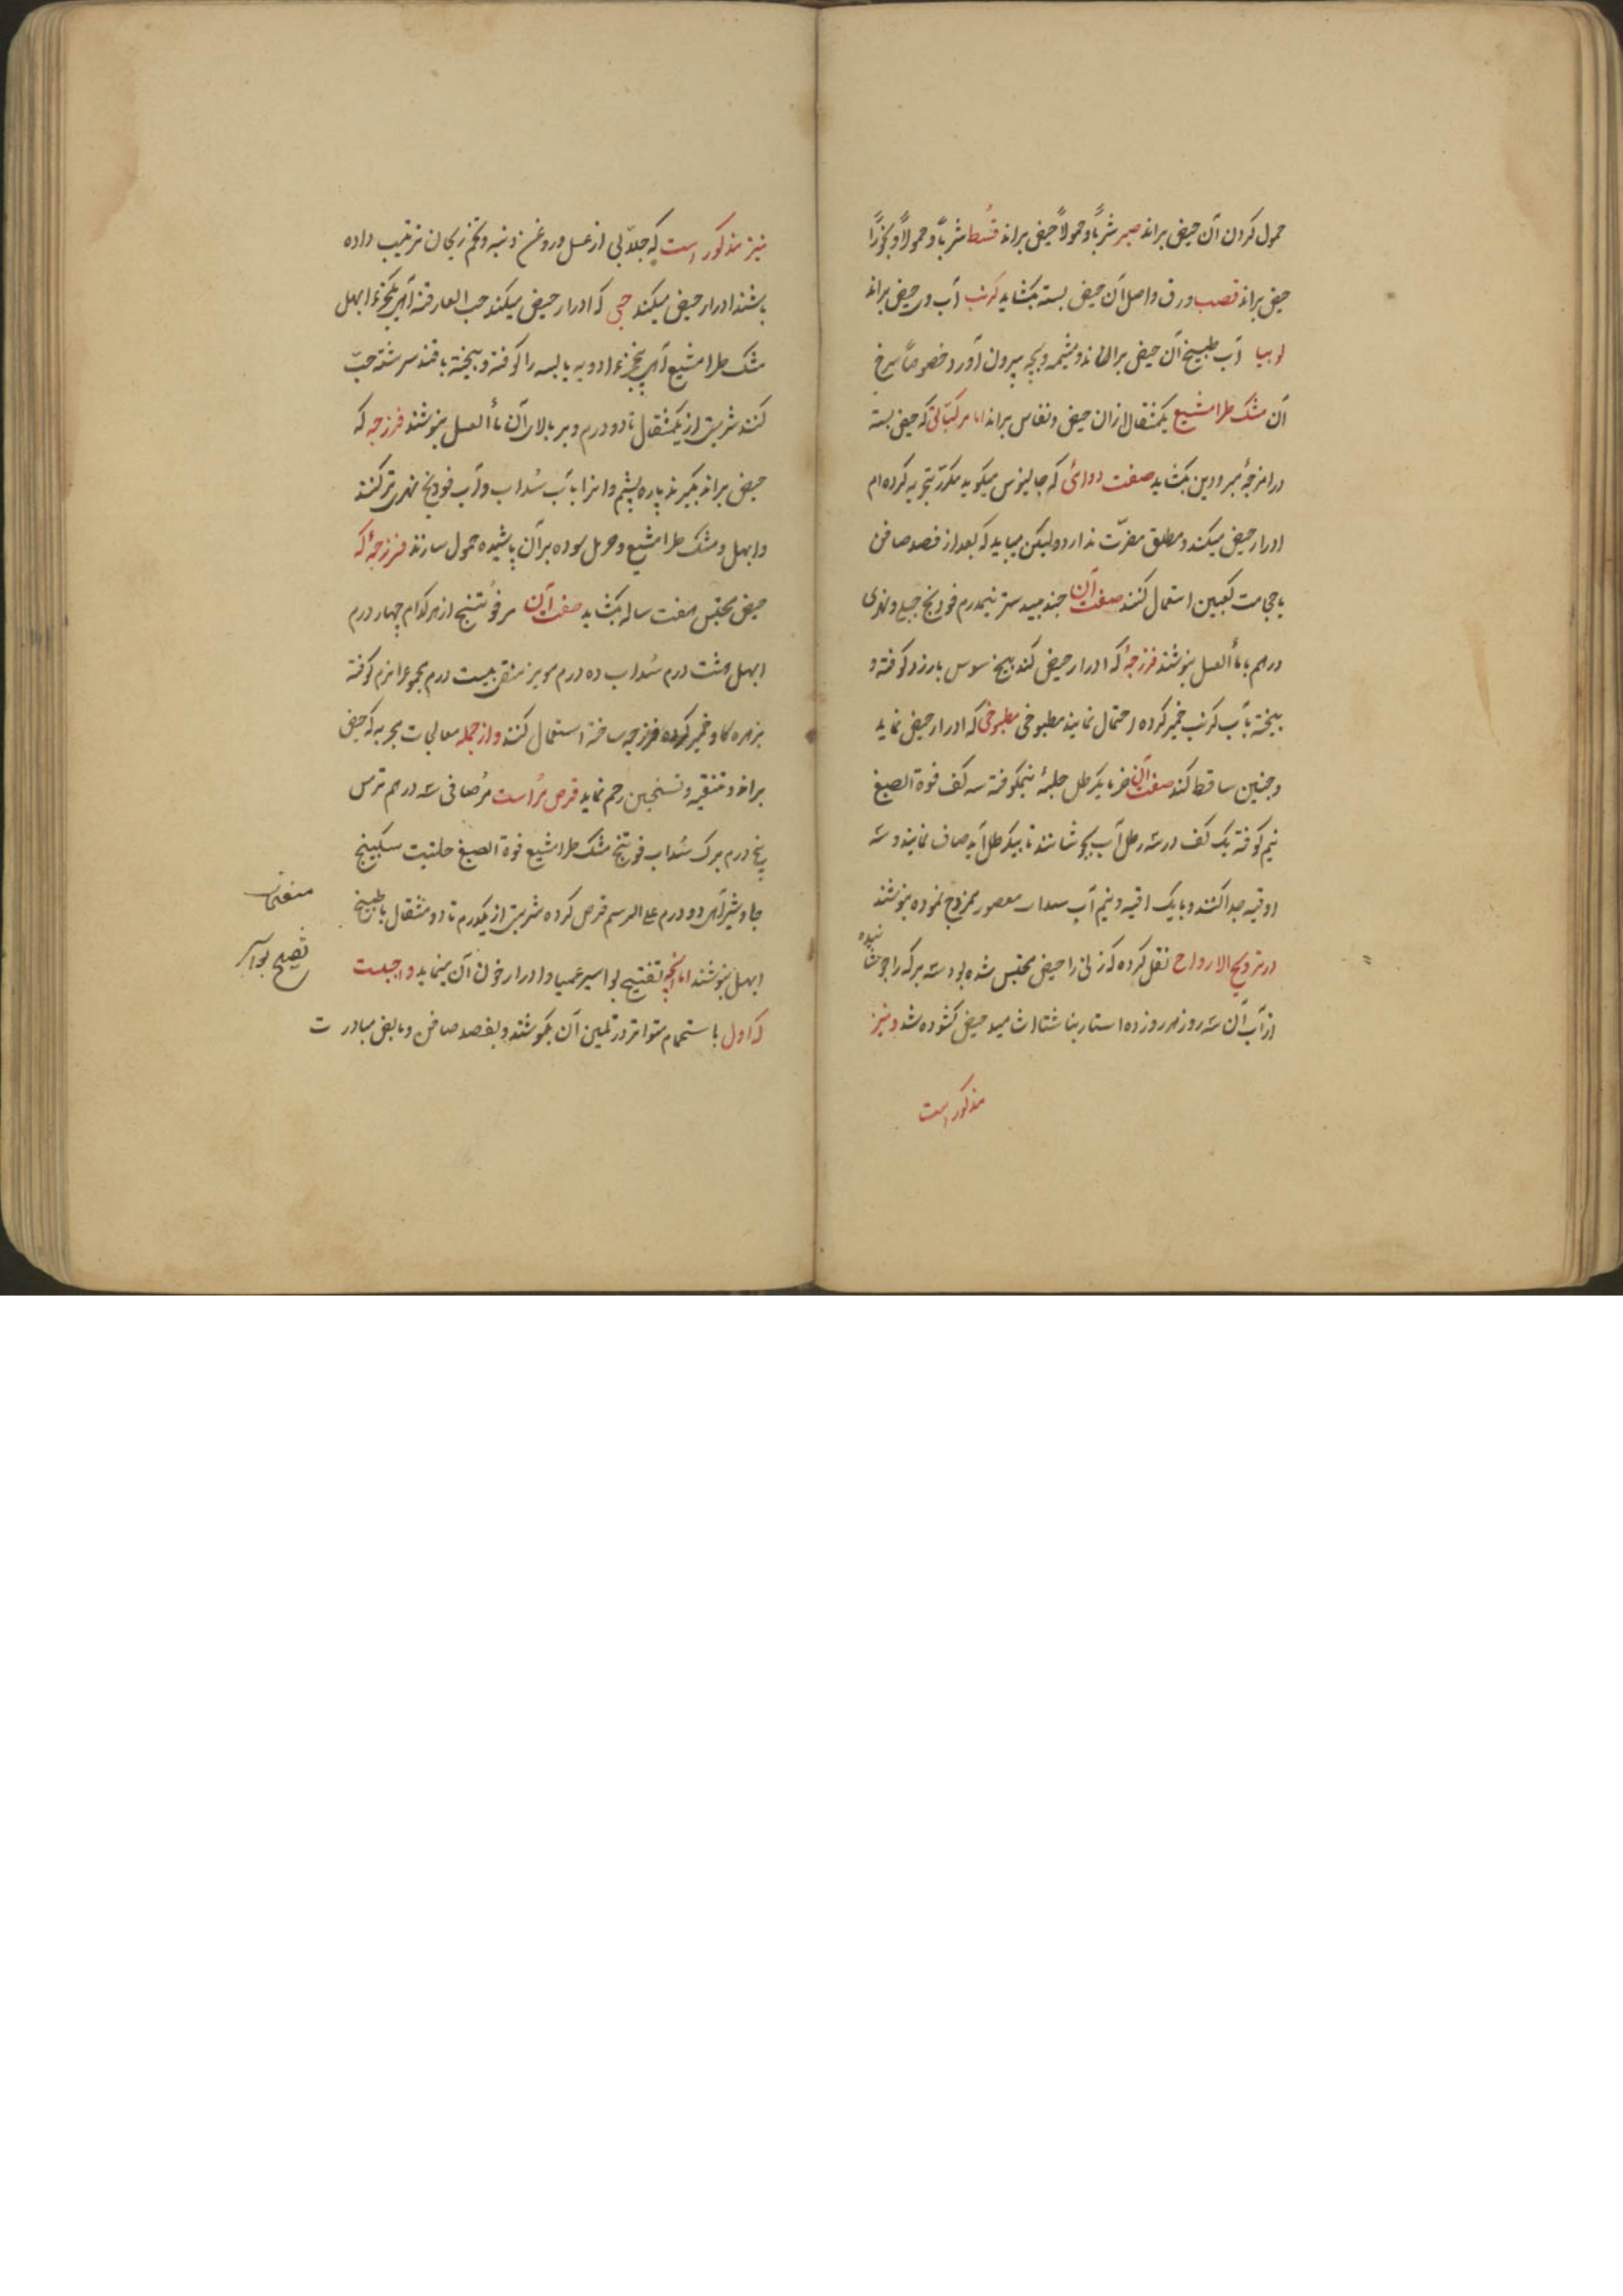 حمول کردن آن حیض براند صبر شرباً و حمولاً حیض براند قسط شرباً و حمولاً و بخوراً
حیض براند قصب ورق و اصل آن حیض بسته بکشاید کرنب آب وی حیض براند
لوبیا آب طبیخ آن حیض براند و مشیمه و بچه بیرون آورد خصوصاً سرخ
آن مشک طرامشیع یکمثقال ازان حیض و نفاس براند اما مرکباتی که حیض بسته
در امزجهٔ مبرودین بکشاید صفت دوائی که جالینوس میکوید مکرر تجربه کرده ام
ادرار حیض میکند و مطلق مضرت ندارد ولیکن میباید که بعد از فصد صافن
یا حجامت کعبین استعمال کنند صفت آن جندبیدستر نیمدرم فودنج جبلی و نهری
درهم با ماءالعسل بنوشند فرزجهٔ که ادرار حیض کند بیخ سوس بارزد کوفته و
بیخته بآب کرنب خمیر کرده احتمال نمایند مطبوخی که ادرار حیض نماید
و جنین ساقط کند صفت آن خرما یکرطل حلبهٔ نیمکوفته سه کف فوة الصبغ
نیم کوفته یک کف در سه رطل آب بجوشانند تا بیکرطل آید صاف نمایند و سه
اوقیه جدا کنند و با یک اوقیه و نیم آب سداب معصور ممزوج نموده بنوشند
در ترویح الارواح نقل کرده که زنی را حیض محتبس شده بود سه برکه را جوشانیده
از آب آن سه روز هر روز ده استار بناشتا اشامید حیض کشوده شد و نیز
مذکور است
نیز مذکور است که جلابی از عسل و روغن و تخم ریحان ترتیب داده
باشند ادرار حیض میکند حبی که ادرار حیض میکند حب الغار قنه آهر یکجزء ابهل
مشک طرامشیع آهر پنجزء ادویه یابسه را کوفته و بیخته با قند سرشته حب
کنند شربتی از یکمثقال تا دو درم و بر بالای آن ماءالعسل بنوشند فرزجه که
حیض براند بکیرند پاره پشم و انرا بآب سداب و آب فودنج نهری تر کنند
و ابهل و مشک طرامشیع و حرمل سوده بر آن پاشیده حمول سازند فرزجهٔ که
حیض محتبس هفت ساله بکشاید صفت آن مر فوتنج از هر کدام چهار درم
ابهل هشت درم سداب ده درم مویز منقی بیست درم مجموع را نرم کوفته
بزهره کاو خمیر کرده فرزجه ساخته استعمال کنند و از جمله معالجات مجربه که حیض
براند و تنقیه و تسخین رحم نماید قرص مر است مر صافی سه درهم ترمس
پنج درم برک سداب فوتنج مشک طرامشیع فوة الصبغ حلتیت سکبینج
جاوشیر آهر دو درم علی الرسم قرص کرده شربتی از یکدرم تا دو مثقال با طبیخ
ابهل بنوشند اما آنچه تفتیح بواسیر عمیا و ادرار خون آن مینماید واجبست
که اول باستحمام متواتر در تلیین آن بکوشند و بفصد صافن و مابض مبادرت